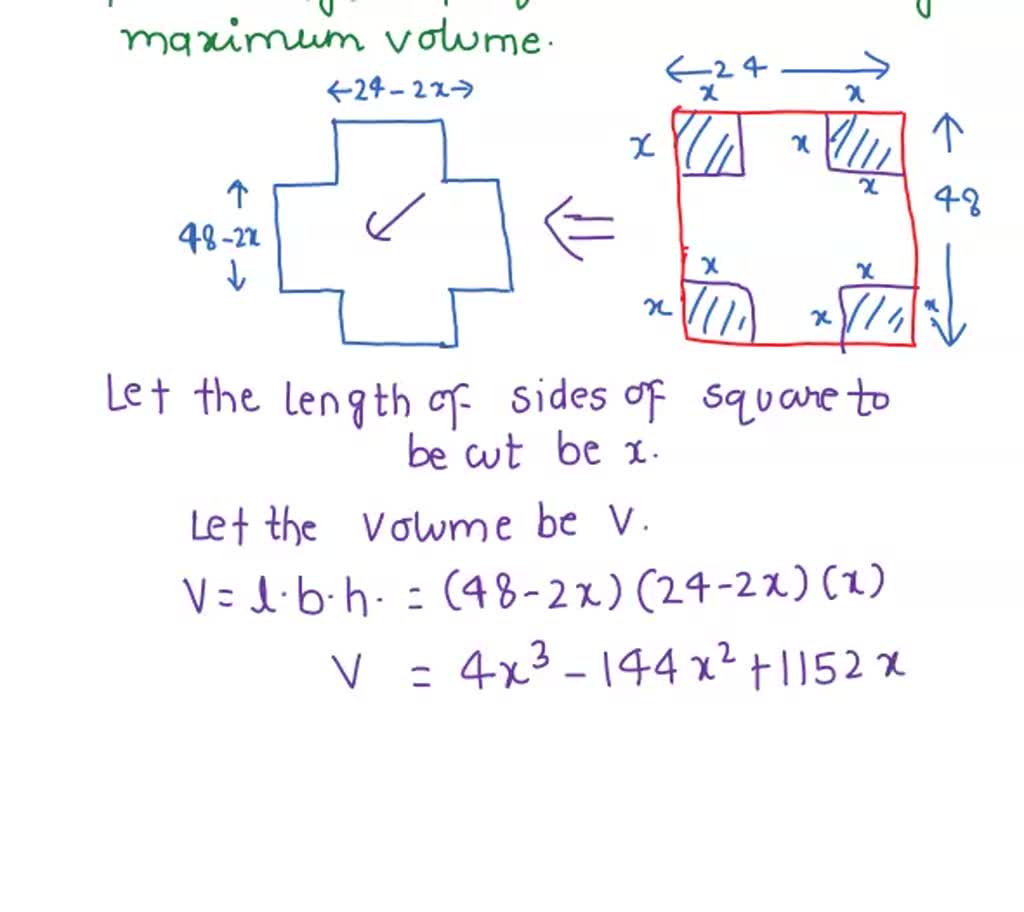 maximum volume.
←24-2x→
←24→
x x
x x
x
↑
48-2x
↓
↑
48
↓
x x
x x x
Let the length of sides of square to
be cut be x.
Let the volume be V.
V = l·b·h. = (48-2x)(24-2x)(x)
V = 4x³ - 144x² + 1152x